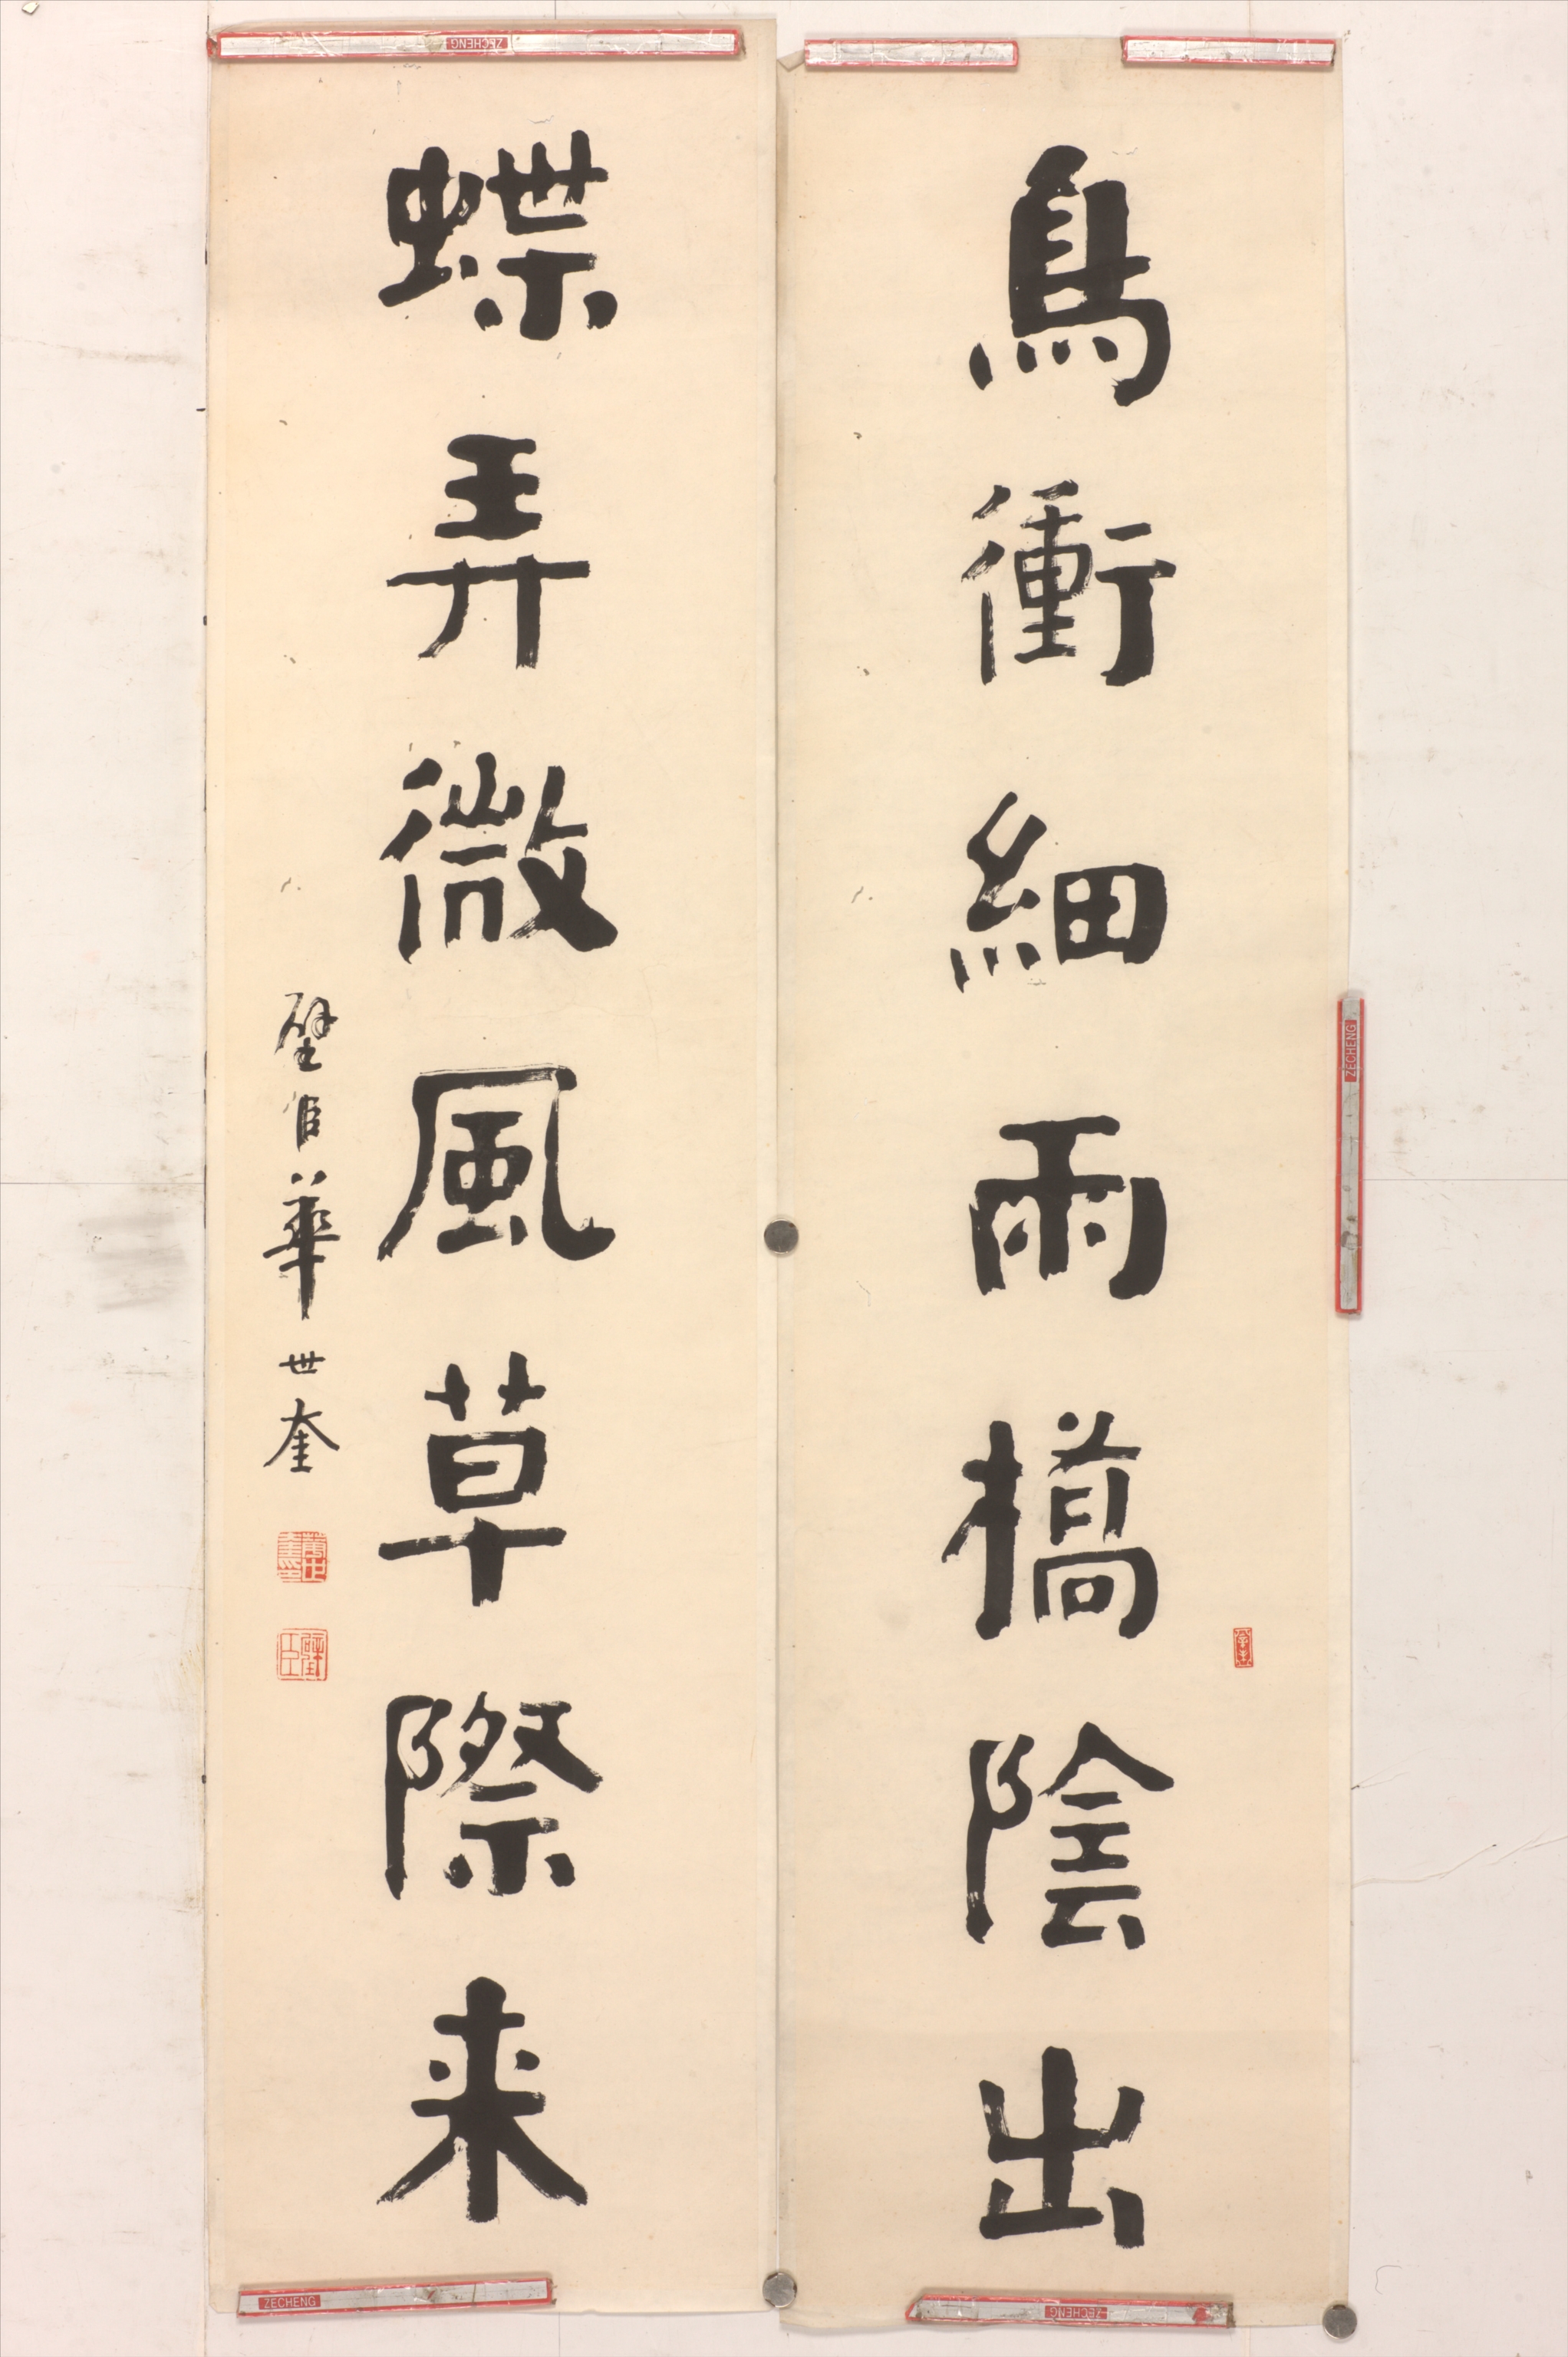 鳥衝細雨橋陰出
蝶弄微風草際来
壁臣華世奎
壁臣
ZECHENG
ZECHENG
ZECHENG
ZECHENG